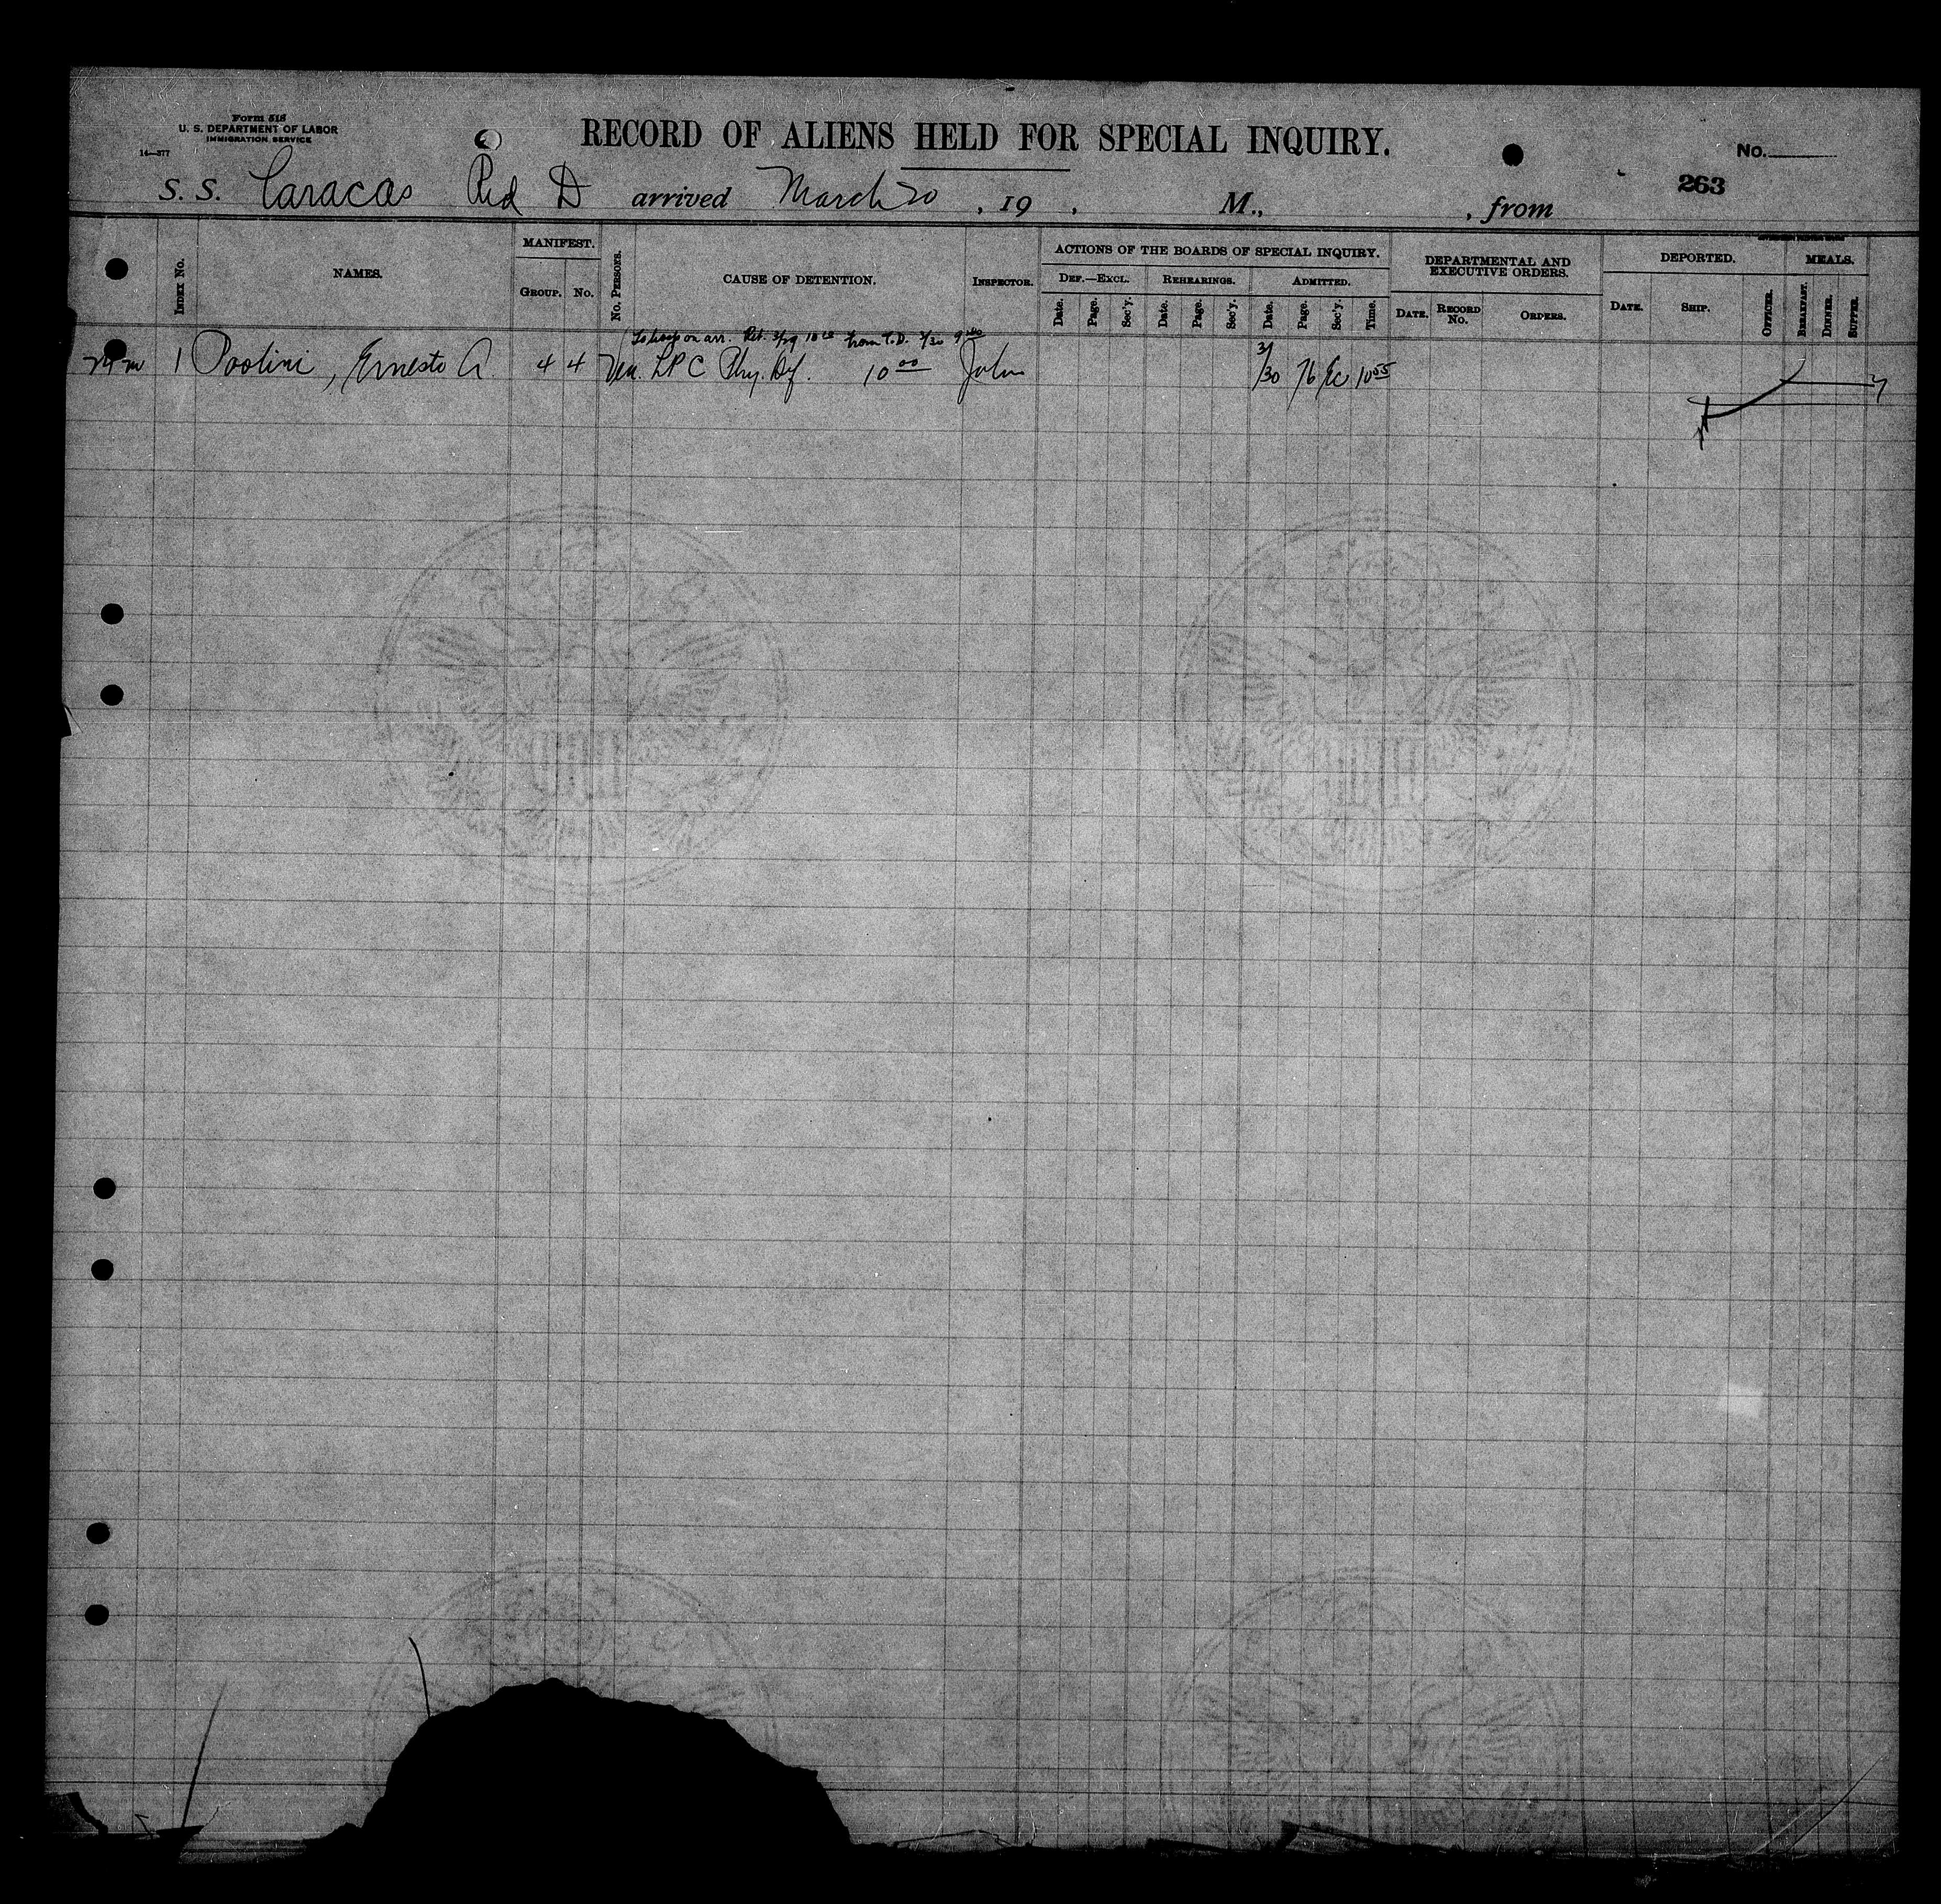 Form 518
U. S. DEPARTMENT OF LABOR
IMMIGRATION SERVICE
14—377
RECORD OF ALIENS HELD FOR SPECIAL INQUIRY.
No.
263
S. S. Caracas Red D arrived March 20, 19 , M., , from
INDEX No.
NAMES.
MANIFEST.
GROUP. No.
No. PERSONS.
CAUSE OF DETENTION.
INSPECTOR.
ACTIONS OF THE BOARDS OF SPECIAL INQUIRY.
DEF.—EXCL. REHEARINGS. ADMITTED.
Date. Page. Sec'y. Date. Page. Sec'y. Date. Page. Sec'y. Time.
DEPARTMENTAL AND
EXECUTIVE ORDERS.
DATE. RECORD No. ORDERS.
DEPORTED.
DATE. SHIP. OFFICER.
MEALS.
BREAKFAST. DINNER. SUPPER.
To hosp on arr. Ret. 3/29 from T.D. 3/30
1 Paolini, Ernesto A. 4 4 Ven. LPC Phy. Def. 10 00 John 3/30 76 Ec 10 55